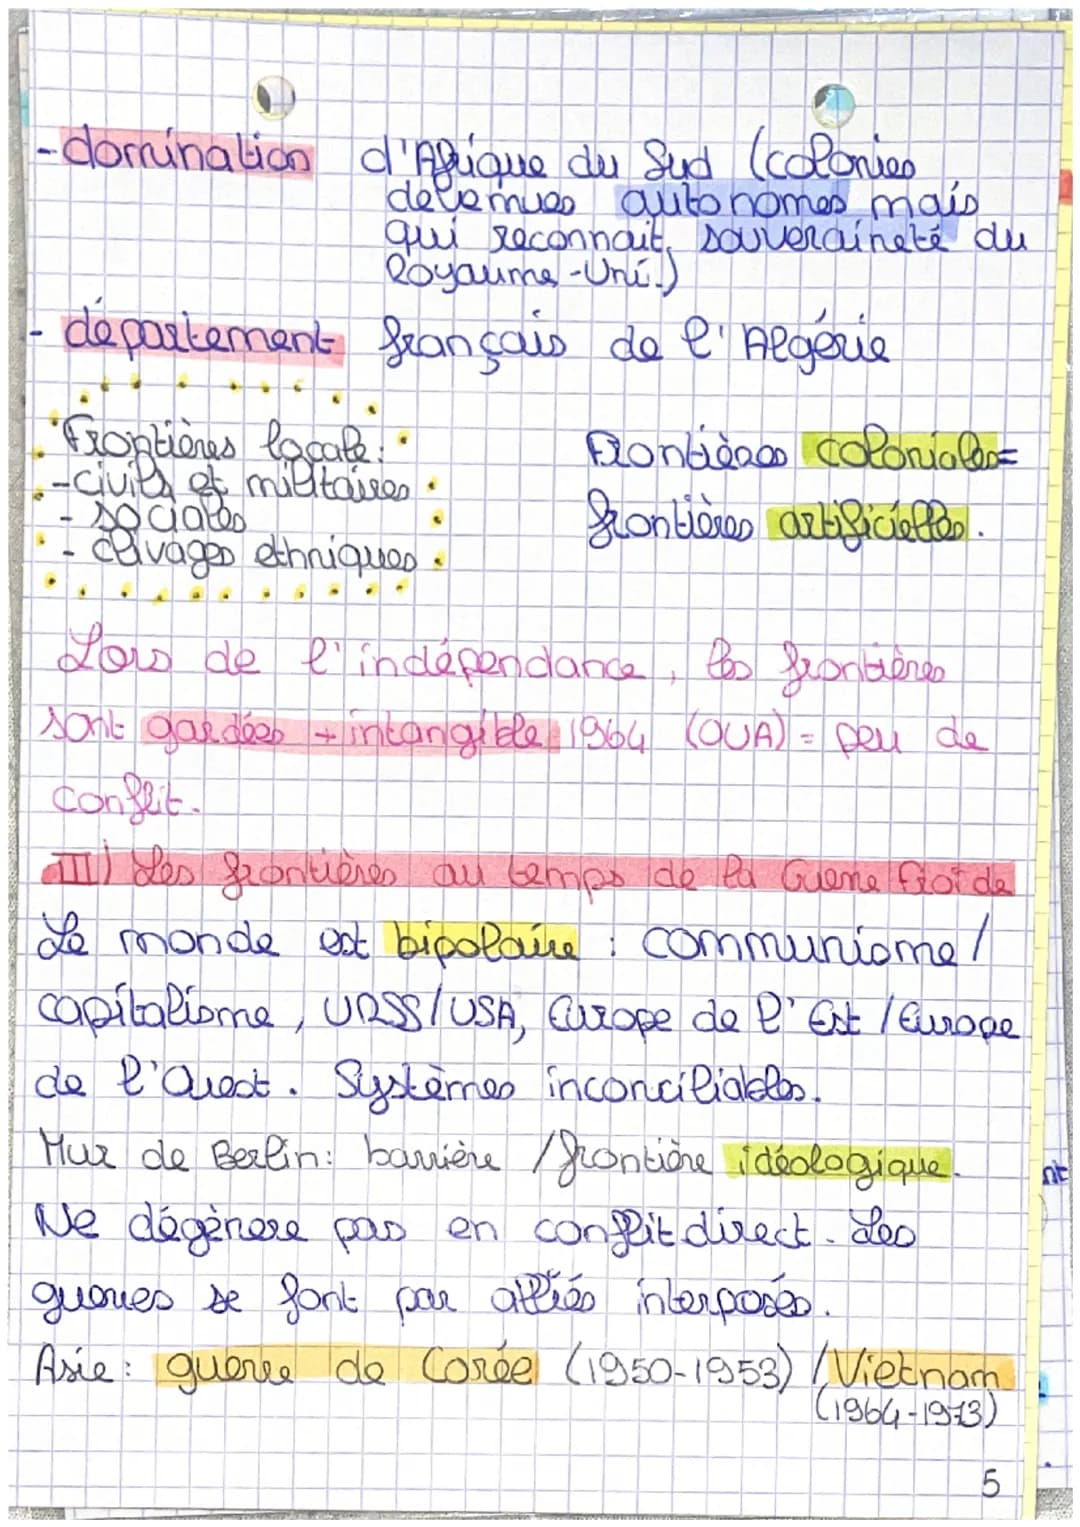 - domination d'Afrique du Sud (colonies
devenues autonomes mais
qui reconnait souveraineté du
Royaume-Uni.)
- département français de l'Algérie
Frontières locale:
- civils et militaires
- sociales
- clivages ethniques
Frontières coloniales=
frontières artificielles.
Lors de l'indépendance, les frontières
sont gardées + intangible 1964 (OUA) = peu de
conflit.
III) Les frontières au temps de la Guerre froide
Le monde est bipolaire : communisme /
capitalisme, URSS/USA, Europe de l'Est / Europe
de l'Ouest. Systèmes inconciliables.
Mur de Berlin: barrière / frontière idéologique.
Ne dégénère pas en conflit direct. Les
guerres se font par alliés interposés.
Asie: guerre de Corée (1950-1953) / Vietnam
(1964-1973)
5
nt